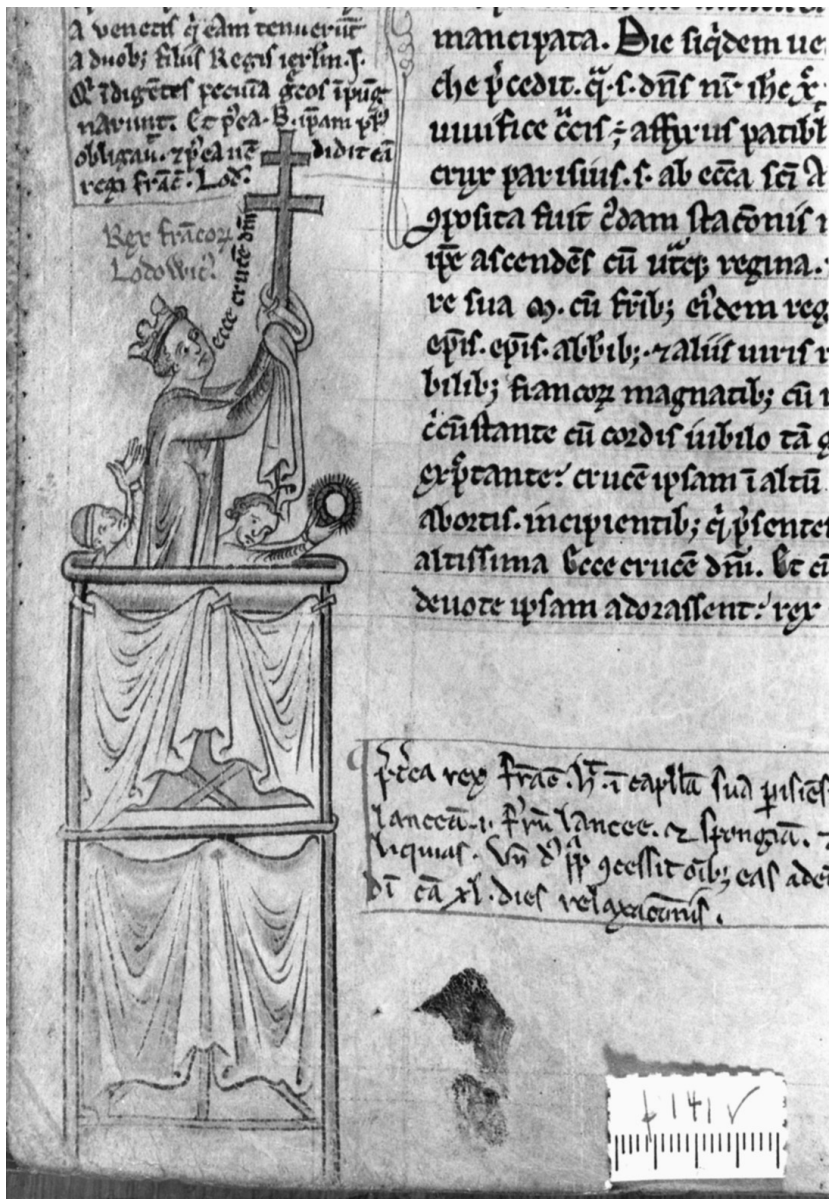 a venetis q̇ eam tenuerūt
a duob; filiis Regis ierl̄m. J.
Et īdigētes pecūia g̊cos īpug
narunt. Et p̊ea .B. ip̄am
obligau̅. ⁊ p̊ea uē didit eā
regi franc̄. Lod.
Rex francoꝝ
Lodowic᷒
ecce crucē dn̄i
mancipata. Die siq̇dem ue
che p̊cedit. q̄. s. dn̄s nr̄ ih̄c x̄
uiuifice c̄cis ; affixus patibl̄
crux parisius. s. ab ecc̄a sc̄i A
ꝯposita fuit q̇dam stac̄onis
ip̄e ascendēs cū utͣq; regina.
re sua m. cū fr̄ib; ei᷒dem reg
ep̄is. ep̄is. abb̄ib; ⁊ aliis uiris
bilib; francoꝝ magnatib; cū
c̊cūstante cū cordis iubilo tā
exp̄ctante: crucē ipsam ī altū
abortis. incipientib; q̇ p̊sente
altissima Ecce crucē dn̄i. Et cū
deuote ipsam adorassent: rex
p̊t̄ea rex franc̄. h̄t ī capll̄a sua parisiēs
lanceā .i. f̄rrū lancee. ⁊ spongiā.
liquias. Vn̄ d̄ pp̄ ꝯcessit oīb; eas
xl. dies relaxac̄onis.
f 141 v